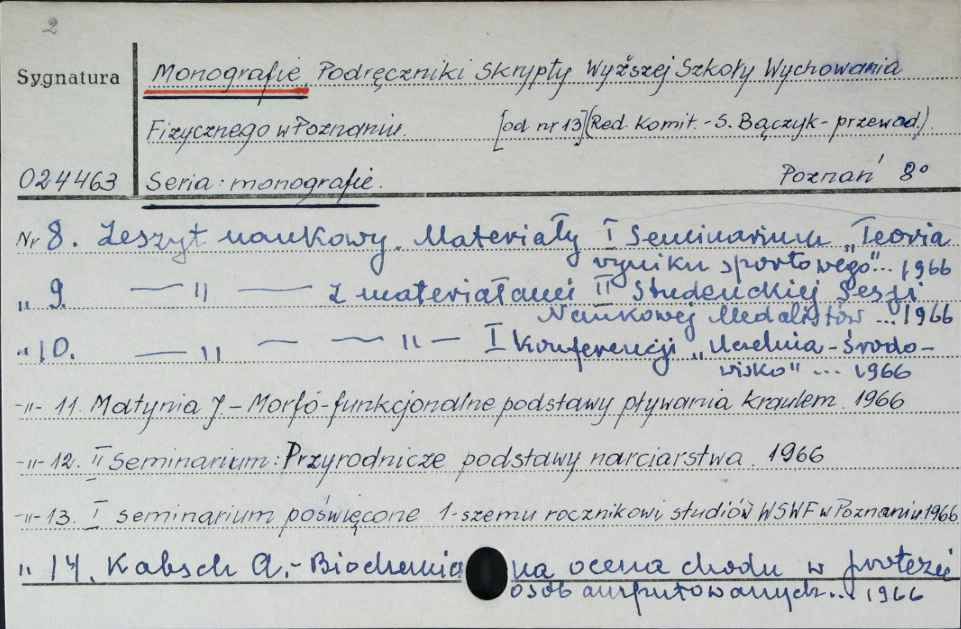 2
Sygnatura
Monografie, Podręczniki Skrypty Wyższej Szkoły Wychowania
Fizycznego w Poznaniu. [od nr 13] (Red. Komit. - S. Bączyk - przewod.)
024463 Seria: monografie. Poznań 8°
Nr 8. Zeszyt naukowy. Materiały I Seminarium „Teoria
wyniku sportowego"... 1966
„ 9. — „ — z materiałami II Studenckiej Sesji
Naukowej Medalistów ... 1966
„ 10. — „ — — „ — I Konferencji „Uczelnia - środo-
wisko" ... 1966
-„- 11. Matynia J - Morfo-funkcjonalne podstawy pływania kraulem. 1966
-„- 12. II Seminarium: Przyrodnicze podstawy narciarstwa. 1966
-„- 13. I seminarium poświęcone 1-szemu rocznikowi studiów WSWF w Poznaniu 1966
„ 14. Kabsch A. - Biochemiczna ocena chodu w protezie
osób amputowanych... 1966